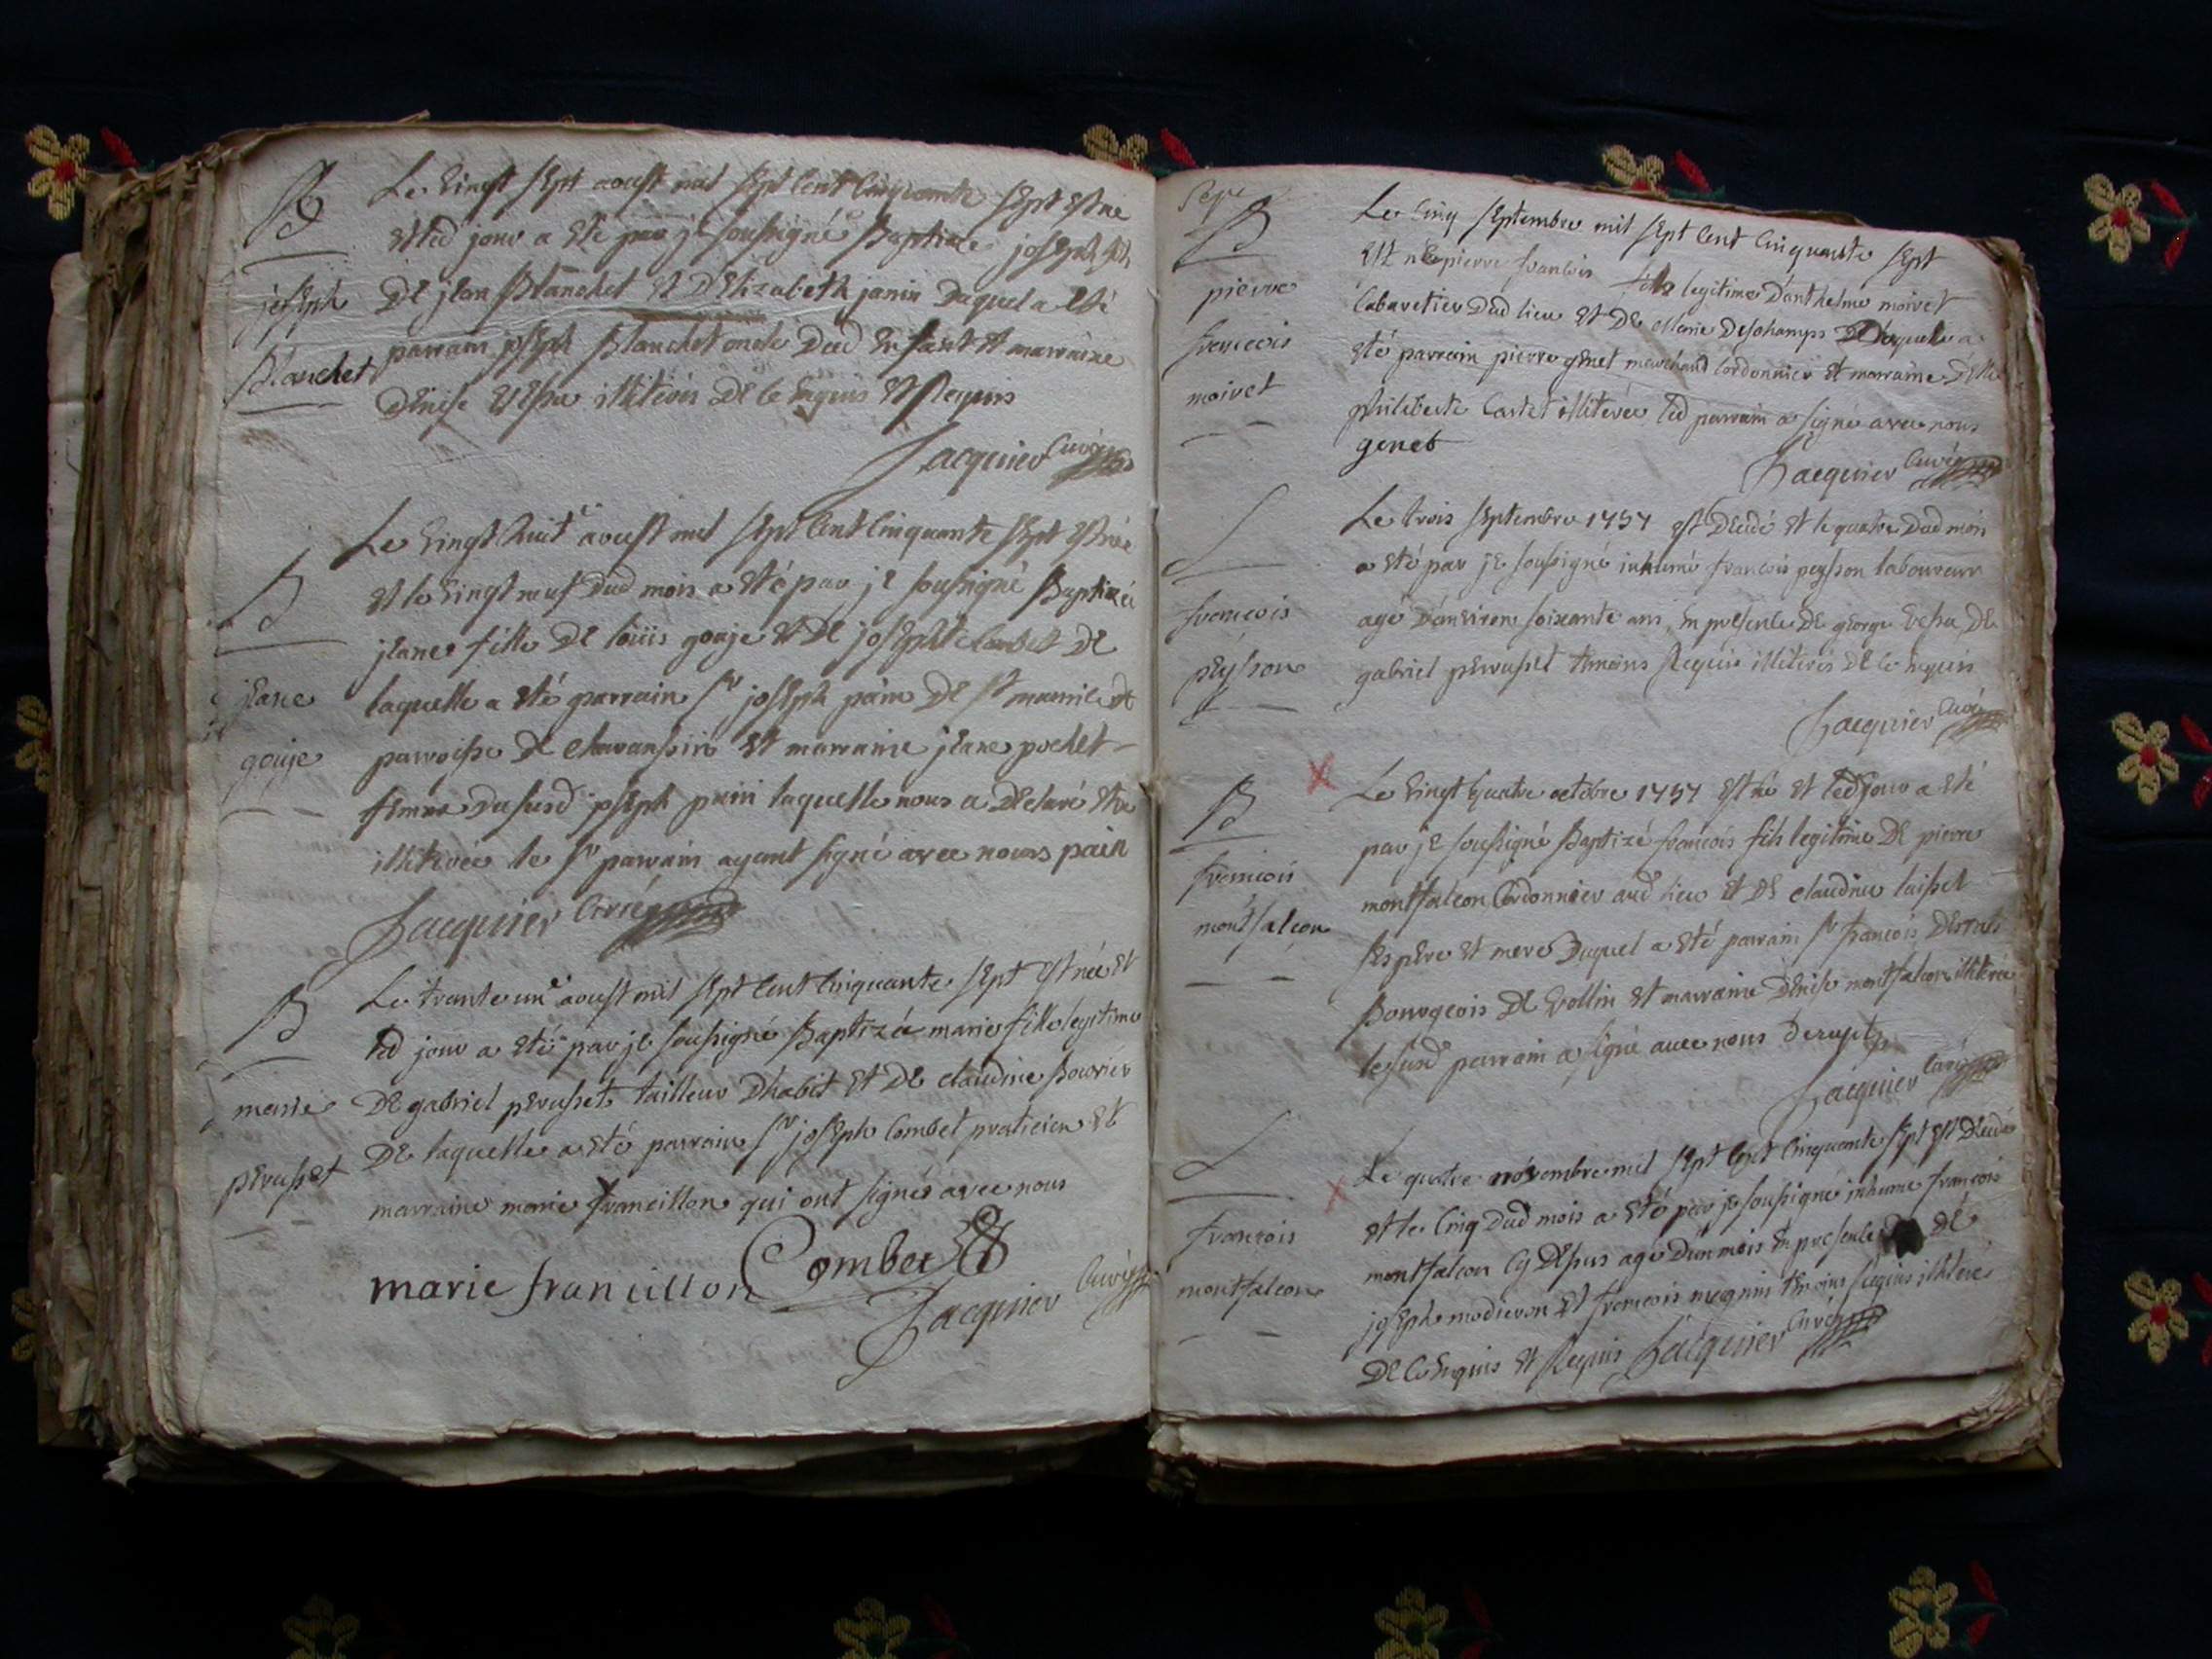 B
joseph
Blanchet
Le vingt sept aoust mil sept cent cinquante sept est né
et led jour a eté par je soussigné Baptizé joseph fils
De jean Blanchet et D'Elizabeth janin Duquel a eté
parrain joseph Blanchet oncle Dud enfant et marraine
Denise illiterés De ce enquis et Requis
Jacquier Curé
B
jeane
gouje
Le vingt huit aoust mil sept cent cinquante sept est née
et le vingt neuf dud mois a eté par je soussigné Baptizée
jeane fille De loüis gouje et De josephte Combet De
laquelle a eté parrain Sr joseph pain De St
parroisse De chavanssin et marraine jeane pochet
femme Dususd joseph pain laquelle nous a Declaré etre
illiterée le Sr parrain ayant signé avec nous pain
Jacquier Curé
B
marie
perusset
Le trante un aoust mil sept cent cinquante sept est née et
led jour a eté par je soussigné Baptizée marie fille legitime
De gabriel perusset tailleur Dhabit et De claudine
De laquelle a eté parrain Sr joseph Combet praticien et
marraine marie francillon qui ont signés avec nous
marie francillon Combet
Jacquier Curé
Sepre
B
pierre
francois
moivet
Le cinq septembre mil sept cent cinquante sept
est né pierre francois fils legitime D'anthelme moivet
Cabaretier Dud lieu et De Marie Deschamps Duquel a
eté parrain pierre genet marchand Cordonnier et marraine
philiberte Castet illiterée led parrain a signé avec nous
genet
Jacquier Curé
S
francois
peysson
Le trois septembre 1757 est Decedé et le quatre Dud mois
a eté par je soussigné inhumé francois peysson laboureur
agé D'anviron soixante ans, en presence De george De
gabriel perusset temoins Requis illiterés De ce enquis
Jacquier Curé
B
francois
montfalcon
Le vingt quatre octobre 1757 est né et led jour a eté
par je soussigné Baptizé francois fils legitime De pierre
montfalcon Cordonnier aud lieu et De claudine laisset
ses pere et mere Duquel a eté parrain Sr francois
Bourgeois De vollin et marraine Denise montfalcon illiterée
le susd parrain a signé avec nous Derupts
Jacquier Curé
S
francois
montfalcon
Le quatre novembre mil sept cent cinquante sept est Decedé
et le cinq Dud mois a eté par je soussigné inhumé francois
montfalcon cy Dessus agé D'un mois en presence De
joseph et francois temoins Requis illiterés
De ce enquis et Requis Jacquier Curé